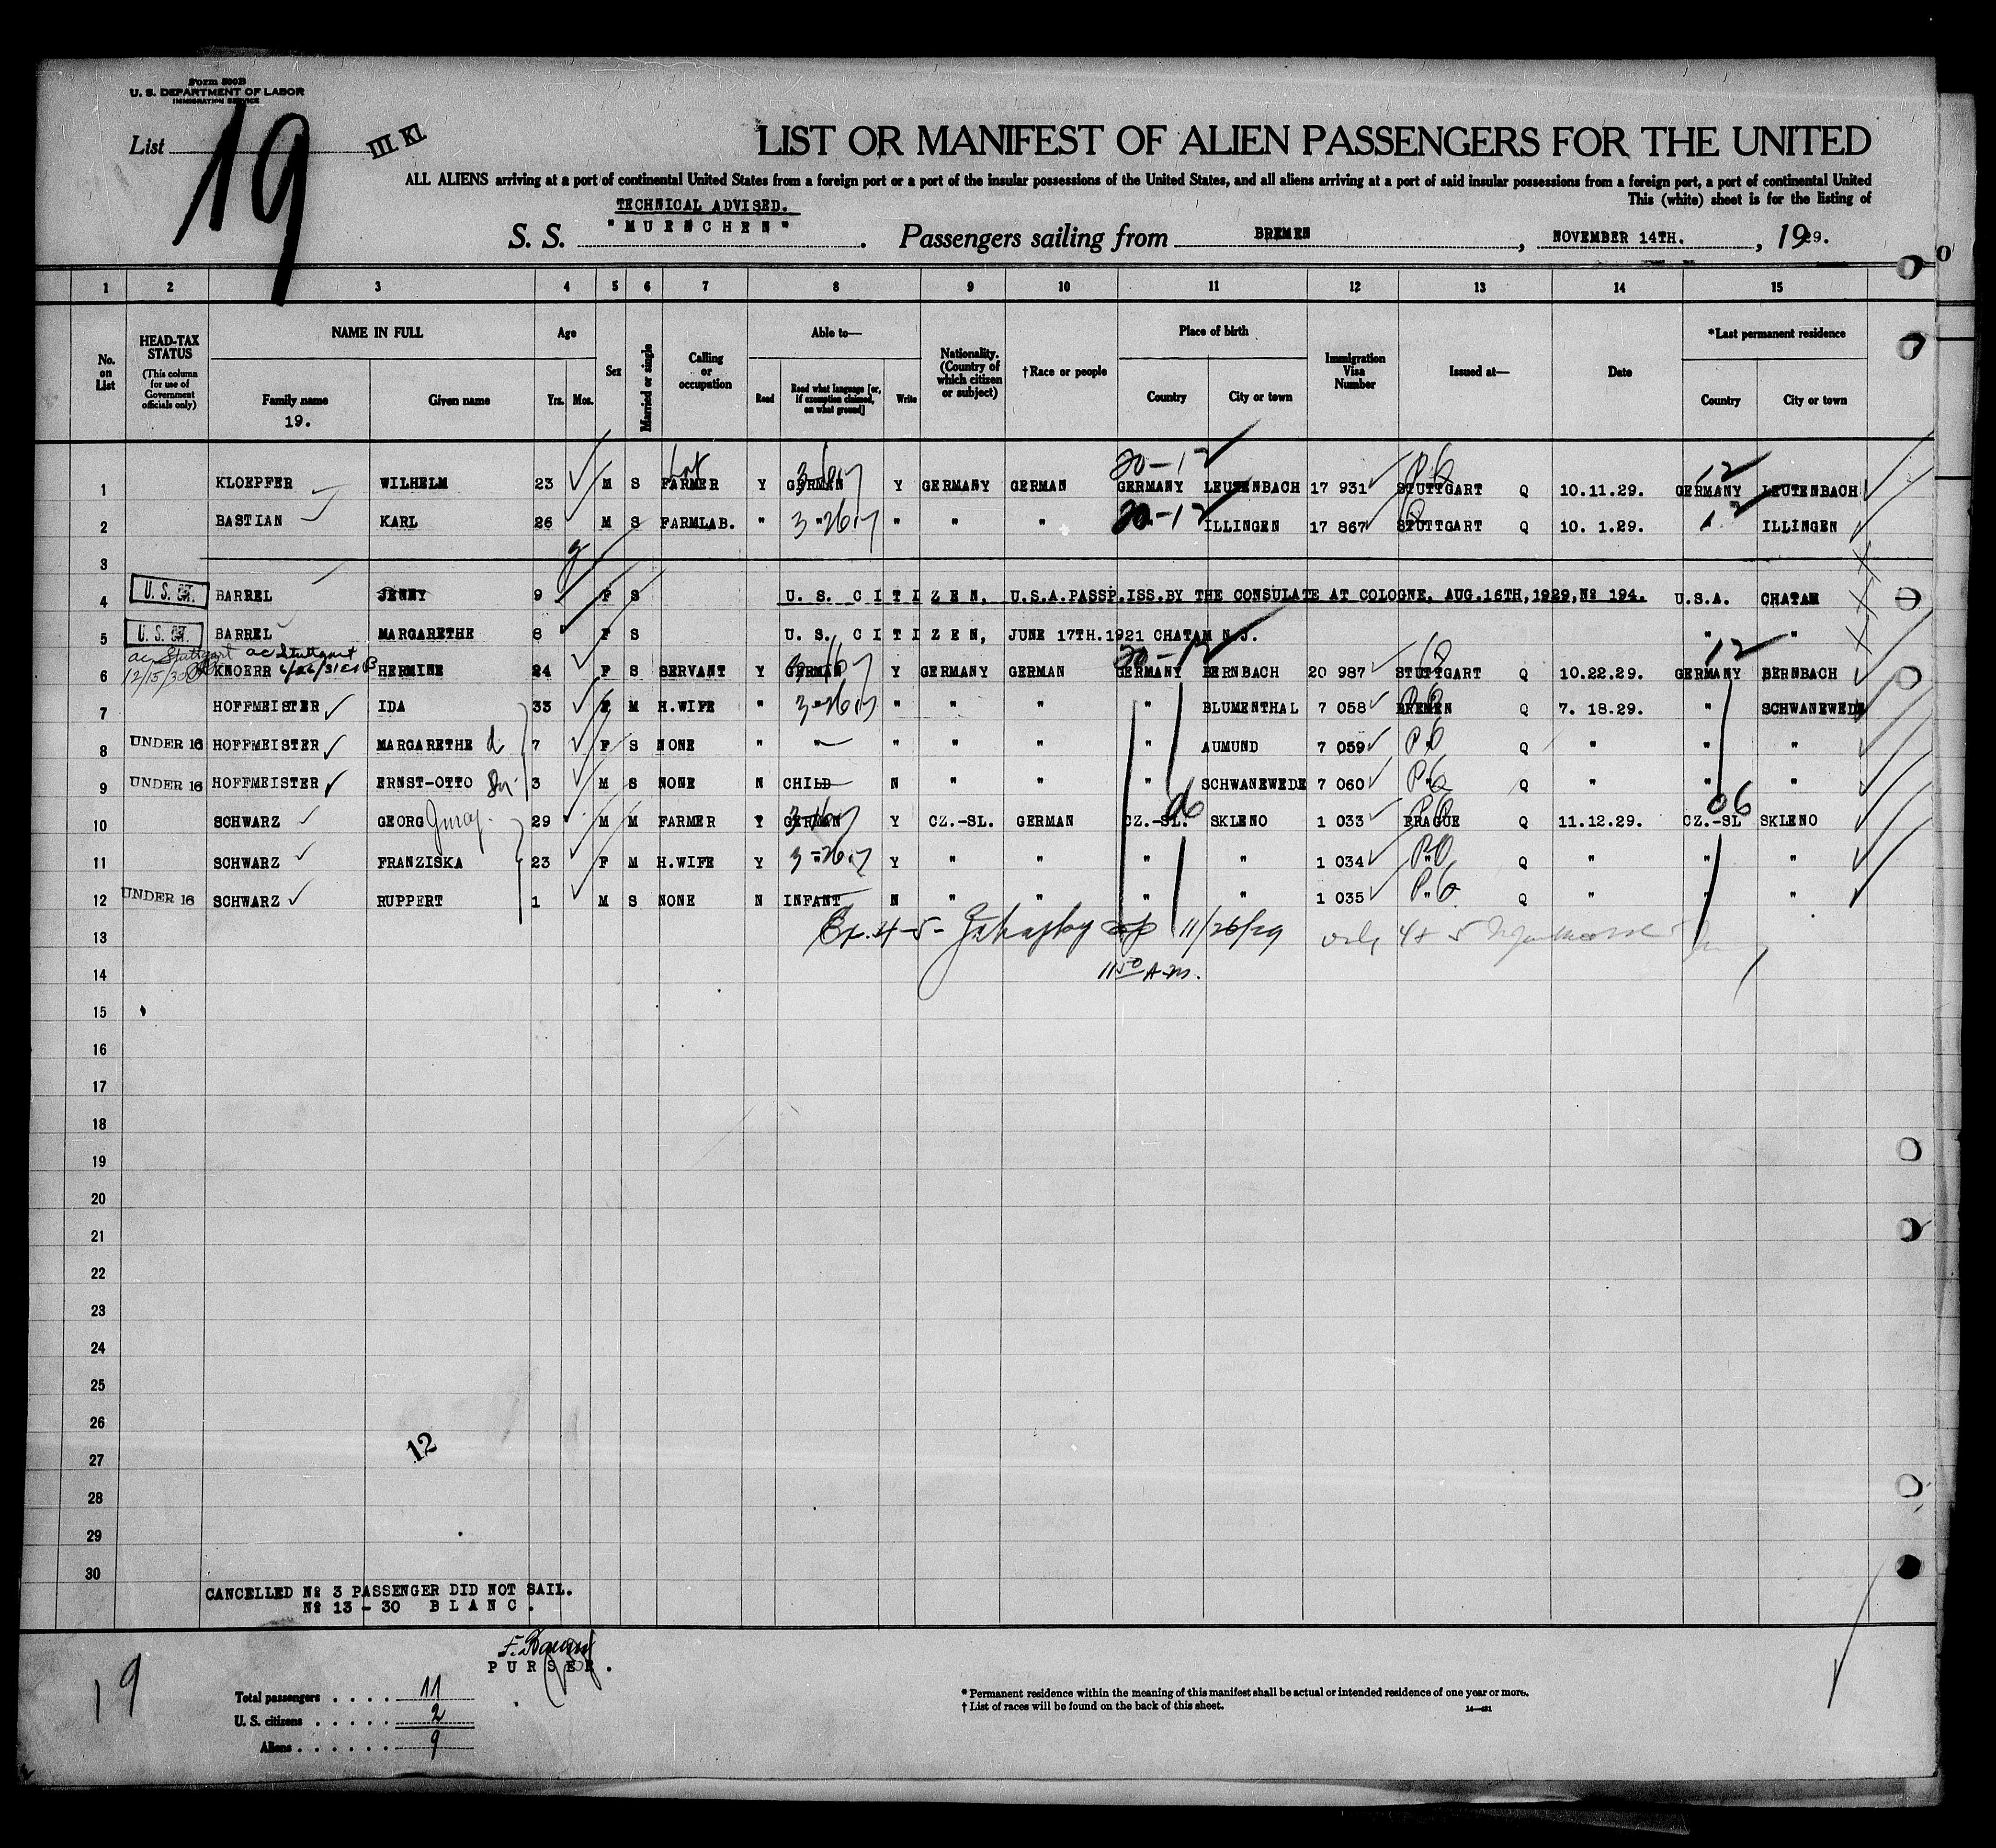 Form 500B
U. S. DEPARTMENT OF LABOR
IMMIGRATION SERVICE
List 19 III Kl
LIST OR MANIFEST OF ALIEN PASSENGERS FOR THE UNITED
ALL ALIENS arriving at a port of continental United States from a foreign port or a port of the insular possessions of the United States, and all aliens arriving at a port of said insular possessions from a foreign port, a port of continental United
This (white) sheet is for the listing of
TECHNICAL ADVISED.
S. S. "MUENCHEN". Passengers sailing from BREMEN, NOVEMBER 14TH., 1929.
1 2 3 4 5 6 7 8 9 10 11 12 13 14 15
No. on List
HEAD-TAX STATUS
(This column for use of Government officials only)
NAME IN FULL
Family name
19.
Given name
Age
Yrs. Mos.
Sex
Married or single
Calling or occupation
Able to—
Read
Read what language [or, if exemption claimed, on what ground]
Write
Nationality. (Country of which citizen or subject)
†Race or people
Place of birth
Country
City or town
Immigration Visa Number
Issued at—
Date
*Last permanent residence
Country
City or town
20-12 12
1 KLOEPFER WILHELM 23 M S FARMER Y GERMAN Y GERMANY GERMAN GERMANY LEUTENBACH 17 931 STUTTGART Q 10.11.29. GERMANY LEUTENBACH
2 BASTIAN KARL 26 M S FARMLAB. " " " " " 20-12 ILLINGEN 17 867 STUTTGART Q 10. 1.29. ILLINGEN
3
4 U. S. CIT. BARREL JENNY 9 F S U. S. CITIZEN, U.S.A.PASSP.ISS.BY THE CONSULATE AT COLOGNE, AUG.16TH,1929,No 194. U.S.A. CHATAM
5 U. S. CIT. BARREL MARGARETHE 8 F S U. S. CITIZEN, JUNE 17TH.1921 CHATAM N.J. " "
ac Stuttgart ac Stuttgart
12/15/30
6 KNOERR HERMINE 24 F S SERVANT Y GERMAN Y GERMANY GERMAN GERMANY BERNBACH 20 987 STUTTGART Q 10.22.29. GERMANY BERNBACH
7 HOFFMEISTER IDA 33 F M H.WIFE " " " " " " BLUMENTHAL 7 058 BREMEN Q 7. 18.29. " SCHWANEWEDE
8 UNDER 16 HOFFMEISTER MARGARETHE d 7 F S NONE " " " " " " AUMUND 7 059 " Q " " "
9 UNDER 16 HOFFMEISTER ERNST-OTTO 3 M S NONE N CHILD N " " " SCHWANEWEDE 7 060 " Q " " "
10 SCHWARZ GEORG 29 M M FARMER Y GERMAN Y CZ.-SL. GERMAN CZ.-SL. SKLENO 1 033 PRAGUE Q 11.12.29. CZ.-SL SKLENO
11 SCHWARZ FRANZISKA 23 F M H.WIFE Y " Y " " " " 1 034 " Q " " "
12 UNDER 16 SCHWARZ RUPPERT 1 M S NONE N INFANT N " " " " 1 035 " Q " " "
13 Ex. 4-5- 11/26/29 only 4 + 5
14 11 50 A.M.
15
16
17
18
19
20
21
22
23
24
25
26
12
27
28
29
30
CANCELLED No 3 PASSENGER DID NOT SAIL.
No 13 - 30 BLANC.
PURSER.
19
Total passengers . . . . 11
U. S. citizens . . . . . 2
Aliens . . . . . . 9
* Permanent residence within the meaning of this manifest shall be actual or intended residence of one year or more.
† List of races will be found on the back of this sheet.